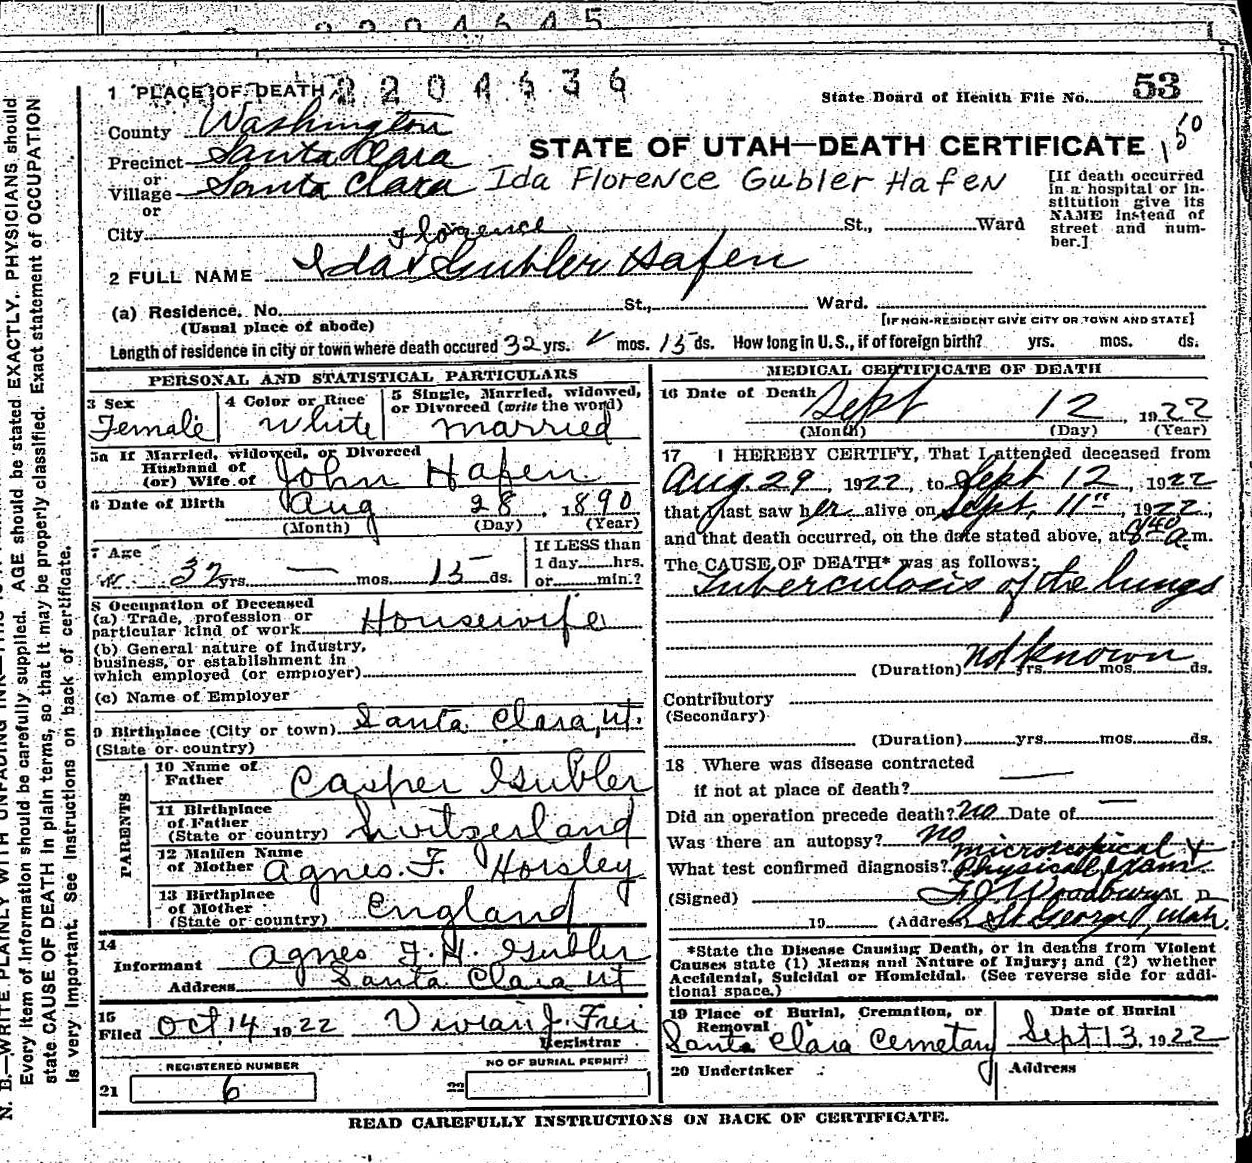 2204645
1 PLACE OF DEATH 2204636
State Board of Health File No. 53
County Washington
Precinct Santa Clara
STATE OF UTAH—DEATH CERTIFICATE 150
or
Village Santa Clara Ida Florence Gubler Hafen
or
[If death occurred in a hospital or institution give its NAME instead of street and number.]
City St., Ward
Florence
2 FULL NAME Ida Gubler Hafen
(a) Residence. No. St., Ward.
(Usual place of abode) [IF NON-RESIDENT GIVE CITY OR TOWN AND STATE]
Length of residence in city or town where death occured 32 yrs. mos. 15 ds. How long in U.S., if of foreign birth? yrs. mos. ds.
PERSONAL AND STATISTICAL PARTICULARS
3 Sex Female
4 Color or Race White
5 Single, Married, widowed, or Divorced (write the word) married
5a If Married, widowed, or Divorced
Husband of
(or) Wife of John Hafen
6 Date of Birth Aug 28, 1890
(Month) (Day) (Year)
7 Age 32 yrs. — mos. 15 ds.
If LESS than
1 day hrs.
or min.?
8 Occupation of Deceased
(a) Trade, profession or
particular kind of work Housewife
(b) General nature of industry,
business, or establishment in
which employed (or employer)
(c) Name of Employer
9 Birthplace (City or town) Santa Clara, Ut.
(State or country)
PARENTS
10 Name of
Father Casper Gubler
11 Birthplace
of Father
(State or country) Switzerland
12 Maiden Name
of Mother Agnes. F. Horsley
13 Birthplace
of Mother
(State or country) England
14
Informant Agnes F. H. Gubler
Address Santa Clara Ut
15
Filed Oct 14 1922 Vivian J. Frei
Registrar
REGISTERED NUMBER
21 6
NO OF BURIAL PERMIT
22
MEDICAL CERTIFICATE OF DEATH
16 Date of Death Sept 12, 1922
(Month) (Day) (Year)
17 I HEREBY CERTIFY, That I attended deceased from
Aug. 29, 1922, to Sept 12, 1922
that I last saw her alive on Sept. 11", 1922,
and that death occurred, on the date stated above, at 8 40 a.m.
The CAUSE OF DEATH* was as follows:
Tuberculosis of the lungs
(Duration) not known yrs. mos. ds.
Contributory
(Secondary)
(Duration) yrs. mos. ds.
18 Where was disease contracted
if not at place of death? —
Did an operation precede death? no Date of —
Was there an autopsy? no
microscopical +
What test confirmed diagnosis? Physical exam
(Signed) F. J. Woodbury M. D.
19 (Address) St George, Utah.
*State the Disease Causing Death, or in deaths from Violent
Causes state (1) Means and Nature of Injury; and (2) whether
Accidental, Suicidal or Homicidal. (See reverse side for addi-
tional space.)
19 Place of Burial, Cremation, or
Removal
Santa Clara Cemetary
Date of Burial
Sept 13, 1922
20 Undertaker
Address
READ CAREFULLY INSTRUCTIONS ON BACK OF CERTIFICATE.
Every item of information should be carefully supplied. AGE should be stated EXACTLY. PHYSICIANS should
state CAUSE OF DEATH in plain terms, so that it may be properly classified. Exact statement of OCCUPATION
is very important. See Instructions on back of certificate.